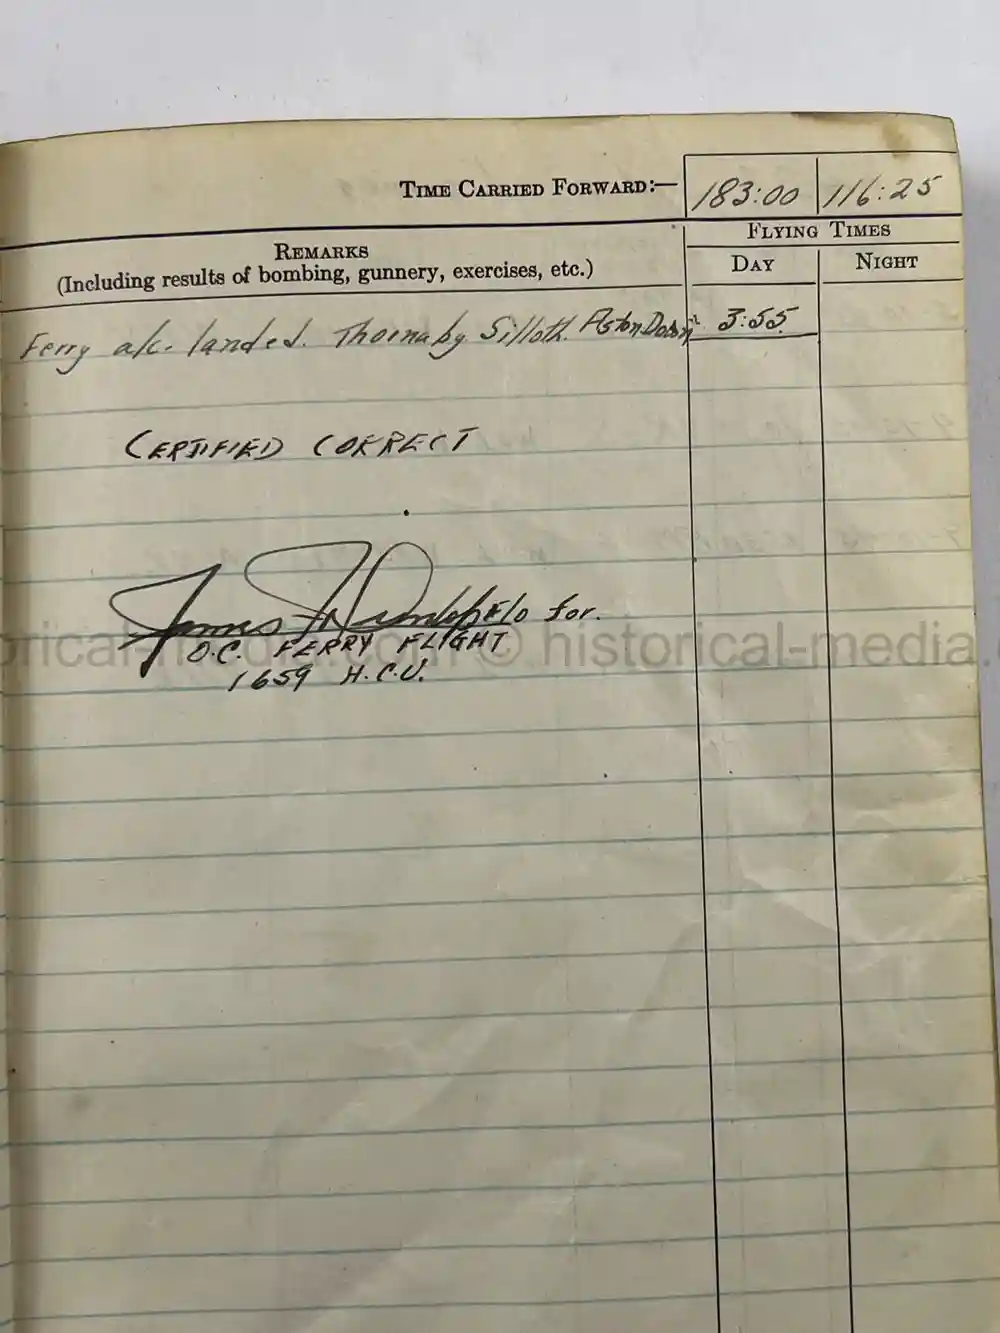 TIME CARRIED FORWARD:— 183:00 116:25
FLYING TIMES
REMARKS
(Including results of bombing, gunnery, exercises, etc.)
DAY NIGHT
Ferry a/c. landed. Thornaby Silloth. Aston Down 3:55
CERTIFIED CORRECT
James Dunlop F/O for.
O.C. FERRY FLIGHT
© historical-media.
1659 H.C.U.